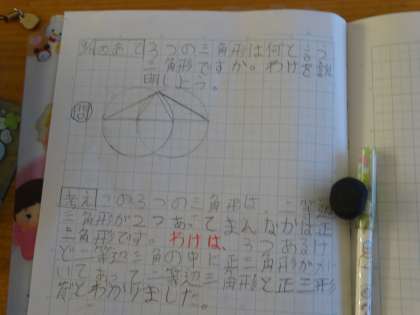 めあて 3つの三角形は何と言う
三角形ですか。わけを説
明しよう。
問
考え この3つの三角形は、二等辺
三角形が2つあってまんなかは正
三角形です。わけは、3つあるけ
ど二等辺三角の中に正三角形が入
いてあって二等辺三角形と正三形
だとわかりました。